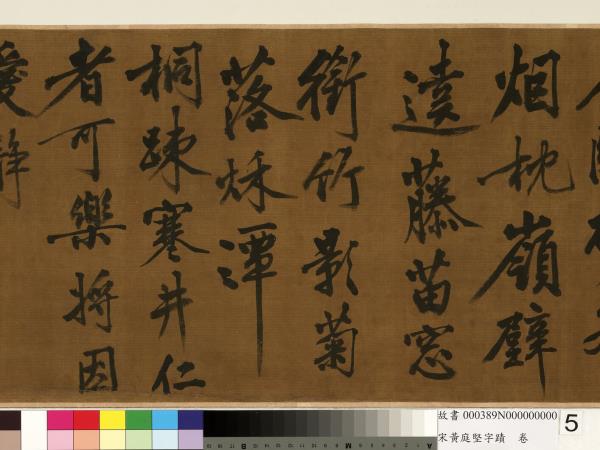 烟枕嶺壁
遶藤苗窓
銜竹影菊
落秋潭
桐踈寒井仁
者可樂將因
愛靜
故書 000389N000000000
5
宋黃庭堅字蹟 卷